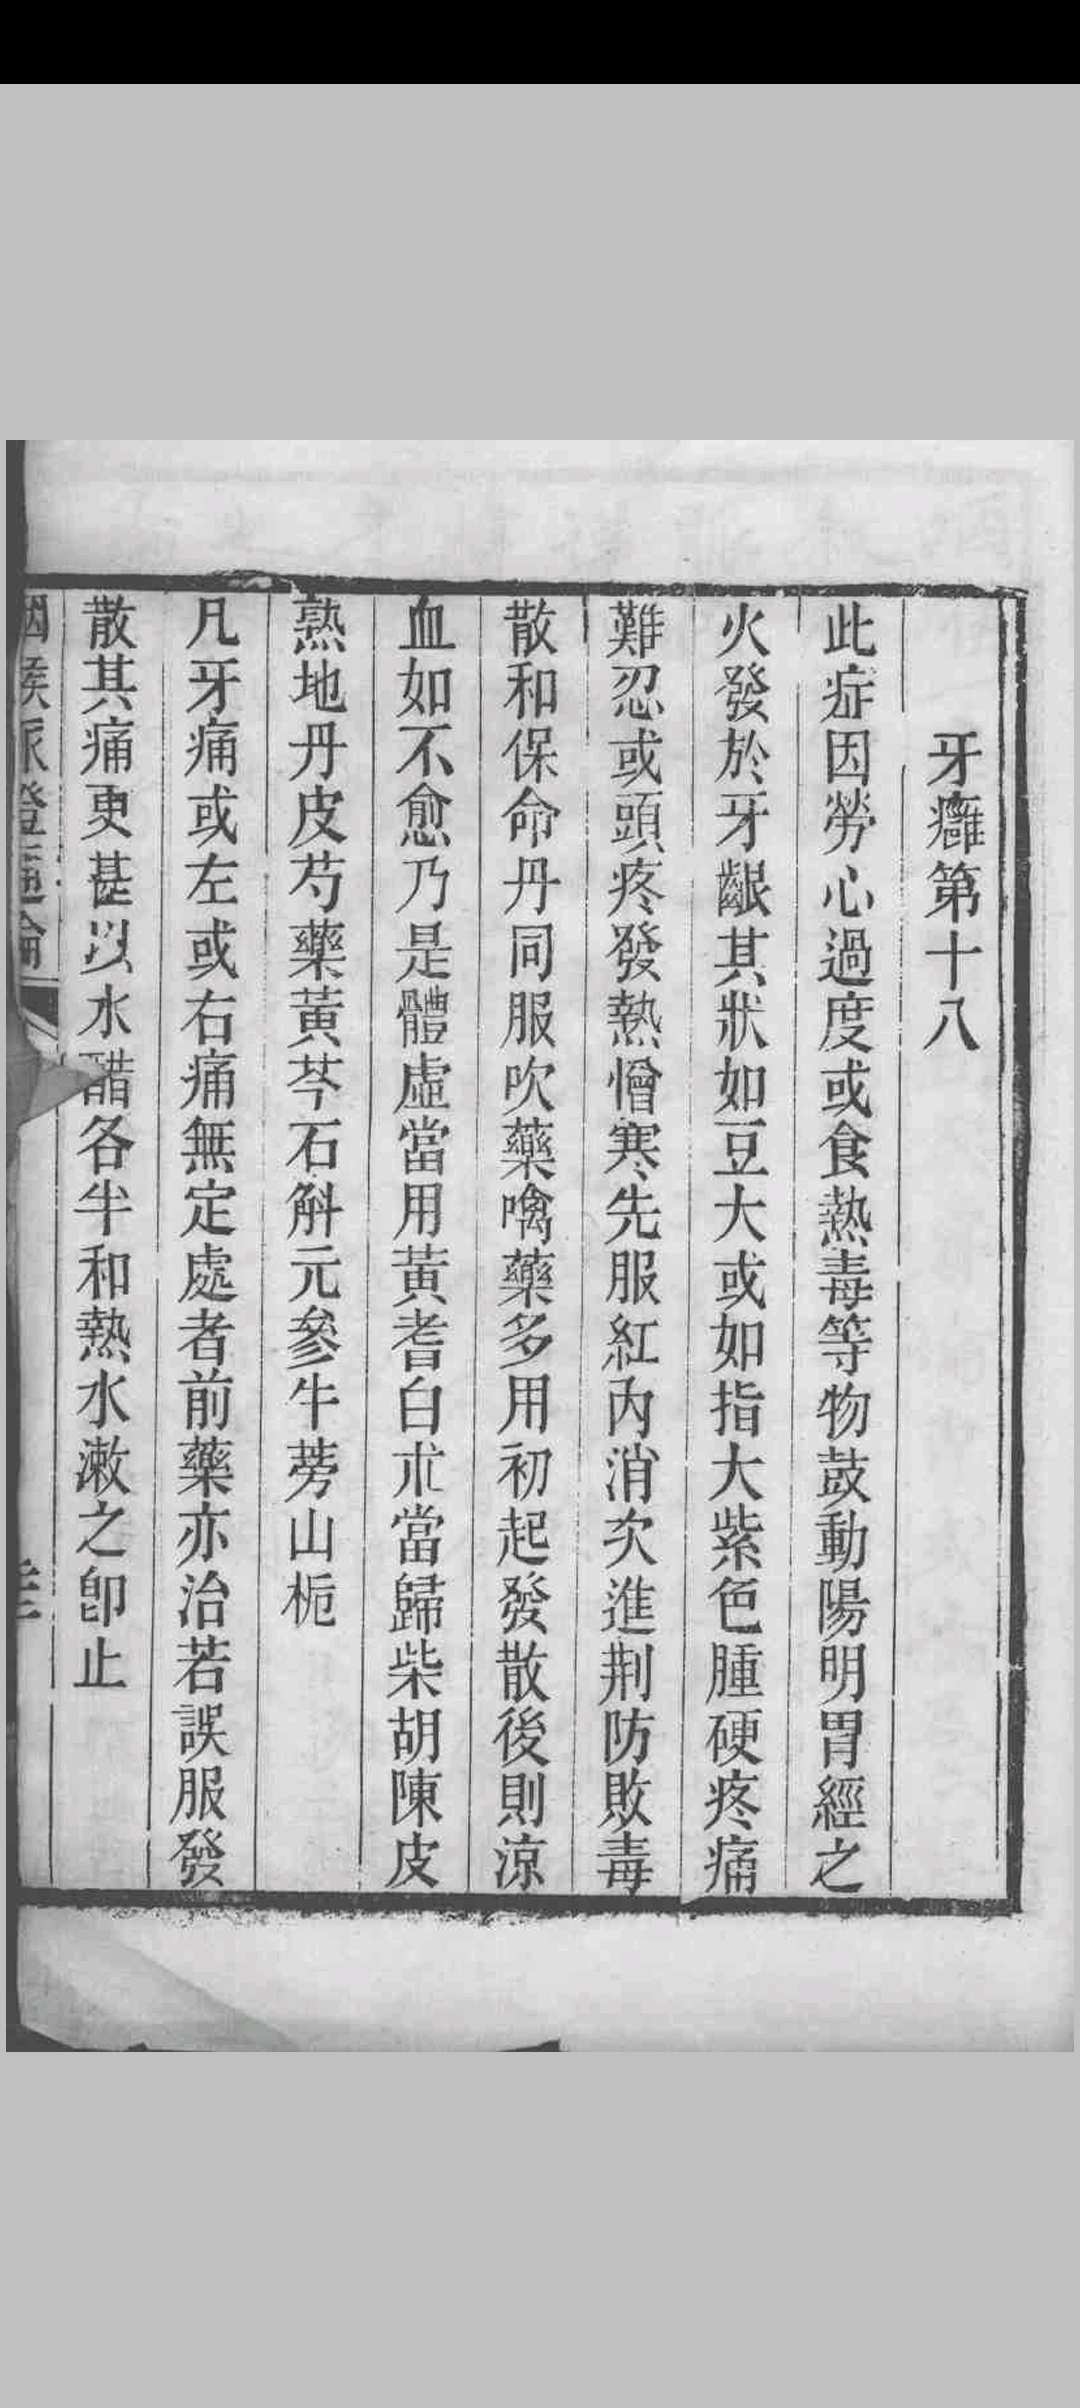 牙癰第十八
此症因勞心過度或食熱毒等物鼓動陽明胃經之
火發於牙齦其狀如豆大或如指大紫色腫硬疼痛
難忍或頭疼發熱憎寒先服紅內消次進荆防敗毒
散和保命丹同服吹藥噙藥多用初起發散後則涼
血如不愈乃是體虛當用黃耆白朮當歸柴胡陳皮
熟地丹皮芍藥黃芩石斛元參牛蒡山梔
凡牙痛或左或右痛無定處者前藥亦治若誤服發
散其痛更甚以水醋各半和熱水漱之卽止
咽喉脈證通論